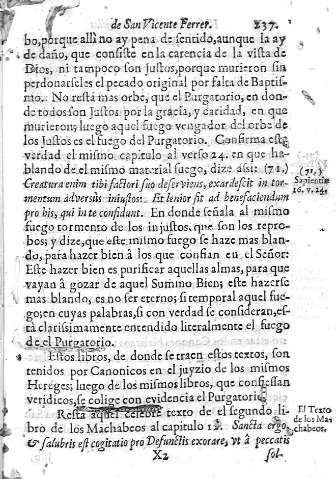 de San Vicente Ferrer. 237.
bo, porque allì no ay pena de sentido, aunque la ay
de daño, que consiste en la carencia de la vista de
Dios, ni tampoco son Justos, porque murieron sin
perdonarseles el pecado original por falta de Baptis-
mo. No resta mas orbe, que el Purgatorio, en don-
de todos son Justos por la gracia, y caridad, en que
murieron; luego aquel fuego vengador del orbe de
los Justos es el fuego del Purgatorio. Confirma esta
verdad el mismo capitulo al verso 24. en que ha-
blando de el mismo material fuego, dize assi: (71.)
Creatura enim tibi factori suo deserviens, exardescit in tor-
mentum adversus iniustos: Et lenior fit ad benefaciendum
pro his, qui in te confidunt. En donde señala al mismo
fuego tormento de los injustos, que son los repro-
bos; y dize, que este mismo fuego se haze mas blan-
do, para hazer bien à los que confian en el Señor:
Este hazer bien es purificar aquellas almas, para que
vayan à gozar de aquel Summo Bien; este hazerse
mas blando, es no ser eterno; si temporal aquel fue-
go; en cuyas palabras, si con verdad se consideran, es-
tà clarissimamente entendido literalmente el fuego
de el Purgatorio.
Estos libros, de donde se traen estos textos, son
tenidos por Canonicos en el juyzio de los mismos
Hereges; luego de los mismos libros, que confiessan
veridicos, se colige con evidencia el Purgatorio.
Resta aquel celebre texto de el segundo li-
bro de los Machabeos al capitulo 12. Sancta ergo,
& salubris est cogitatio pro Defunctis exorare, vt à peccatis
X2 sol-
(71.)
Sapientiæ
16. v. 24.
El Texto
de los Ma-
chabeos.